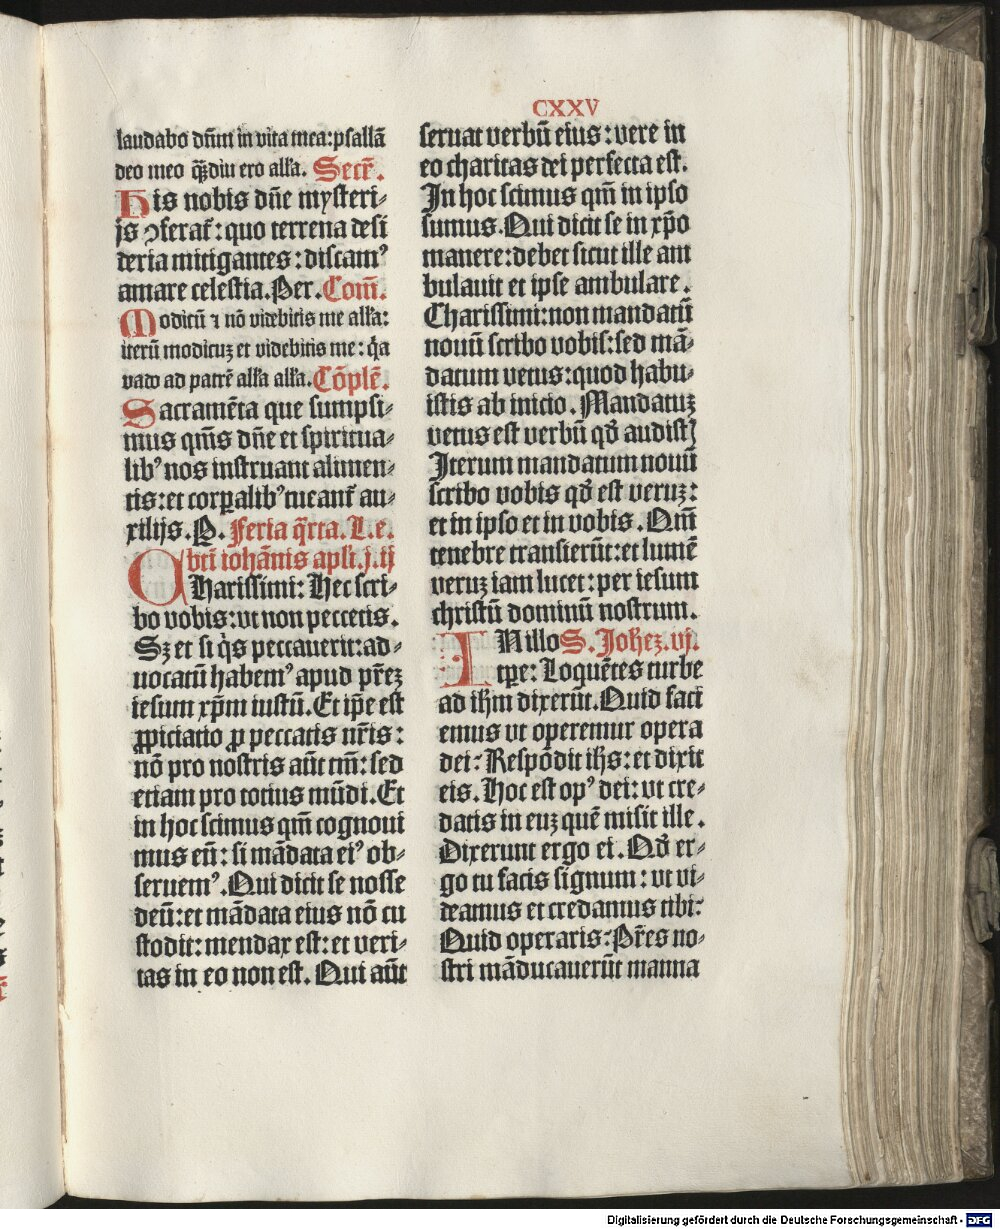 CXXV
laudabo dñm in vita mea:psallā
deo meo q̄ꝫdiu ero alła. Secr̄.
His nobis dñe mysteri-
js ꝯferat᷑: quo terrena desi
deria mitigantes: discamꝰ
amare celestia. Per. Com̄.
Modicū ⁊ nō videbitis me alła:
iterū modicuꝫ et videbitis me: q̇a
vado ad patrē alła alła. Cōplē.
Sacramēta que sumpsi-
mus qm̄s dñe et spiritua-
libꝰ nos instruant alimen-
tis: et corꝑalibꝰ tueant᷑ au-
xilijs. P. Feria q̄rta. L. e.
bti iohānis apli. j. ij
Charissimi: Hec scri-
bo vobis: vt non peccetis.
Sꝫ et si q̇s peccauerit: ad-
uocatū habemꝰ apud pr̄eꝫ
iesum xp̄m iustū. Et ip̄e est
ꝓpiciatio ꝓ peccatis nr̄is:
nō pro nostris aūt tm̄: sed
etiam pro totius mūdi. Et
in hoc scimus qm̄ cognoui
mus eū: si mādata eiꝰ ob-
seruemꝰ. Qui dicit se nosse
deū: et mādata eius nō cu
stodit: mendax est: et veri-
tas in eo non est. Qui aūt
seruat verbū eius: vere in
eo charitas dei perfecta est.
In hoc scimus qm̄ in ipso
sumus. Qui dicit se in xp̄o
manere: debet sicut ille am
bulauit et ipse ambulare.
Charissimi: non mandatū
nouū scribo vobis: sed mā-
datum vetus: quod habu-
istis ab inicio. Mandatuꝫ
vetus est verbū qđ audistꝭ
Iterum mandatum nouū
scribo vobis qđ est veruꝫ:
et in ipso et in vobis. Qm̄
tenebre transierūt: et lumē
veruꝫ iam lucet: per iesum
christū dominū nostrum.
IN illo S. Joheꝫ. vj.
tp̄e: Loquētes turbe
ad ihm̄ dixerūt. Quid faci
emus vt operemur opera
dei? Respōdit ihs̄: et dixit
eis. Hoc est opꝰ dei: vt cre-
datis in euꝫ quē misit ille.
Dixerunt ergo ei. Qđ er-
go tu facis signum: vt vi-
deamus et credamus tibi?
Quid operaris? Pr̄es no-
stri māducauerūt manna
Digitalisierung gefördert durch die Deutsche Forschungsgemeinschaft - DFG